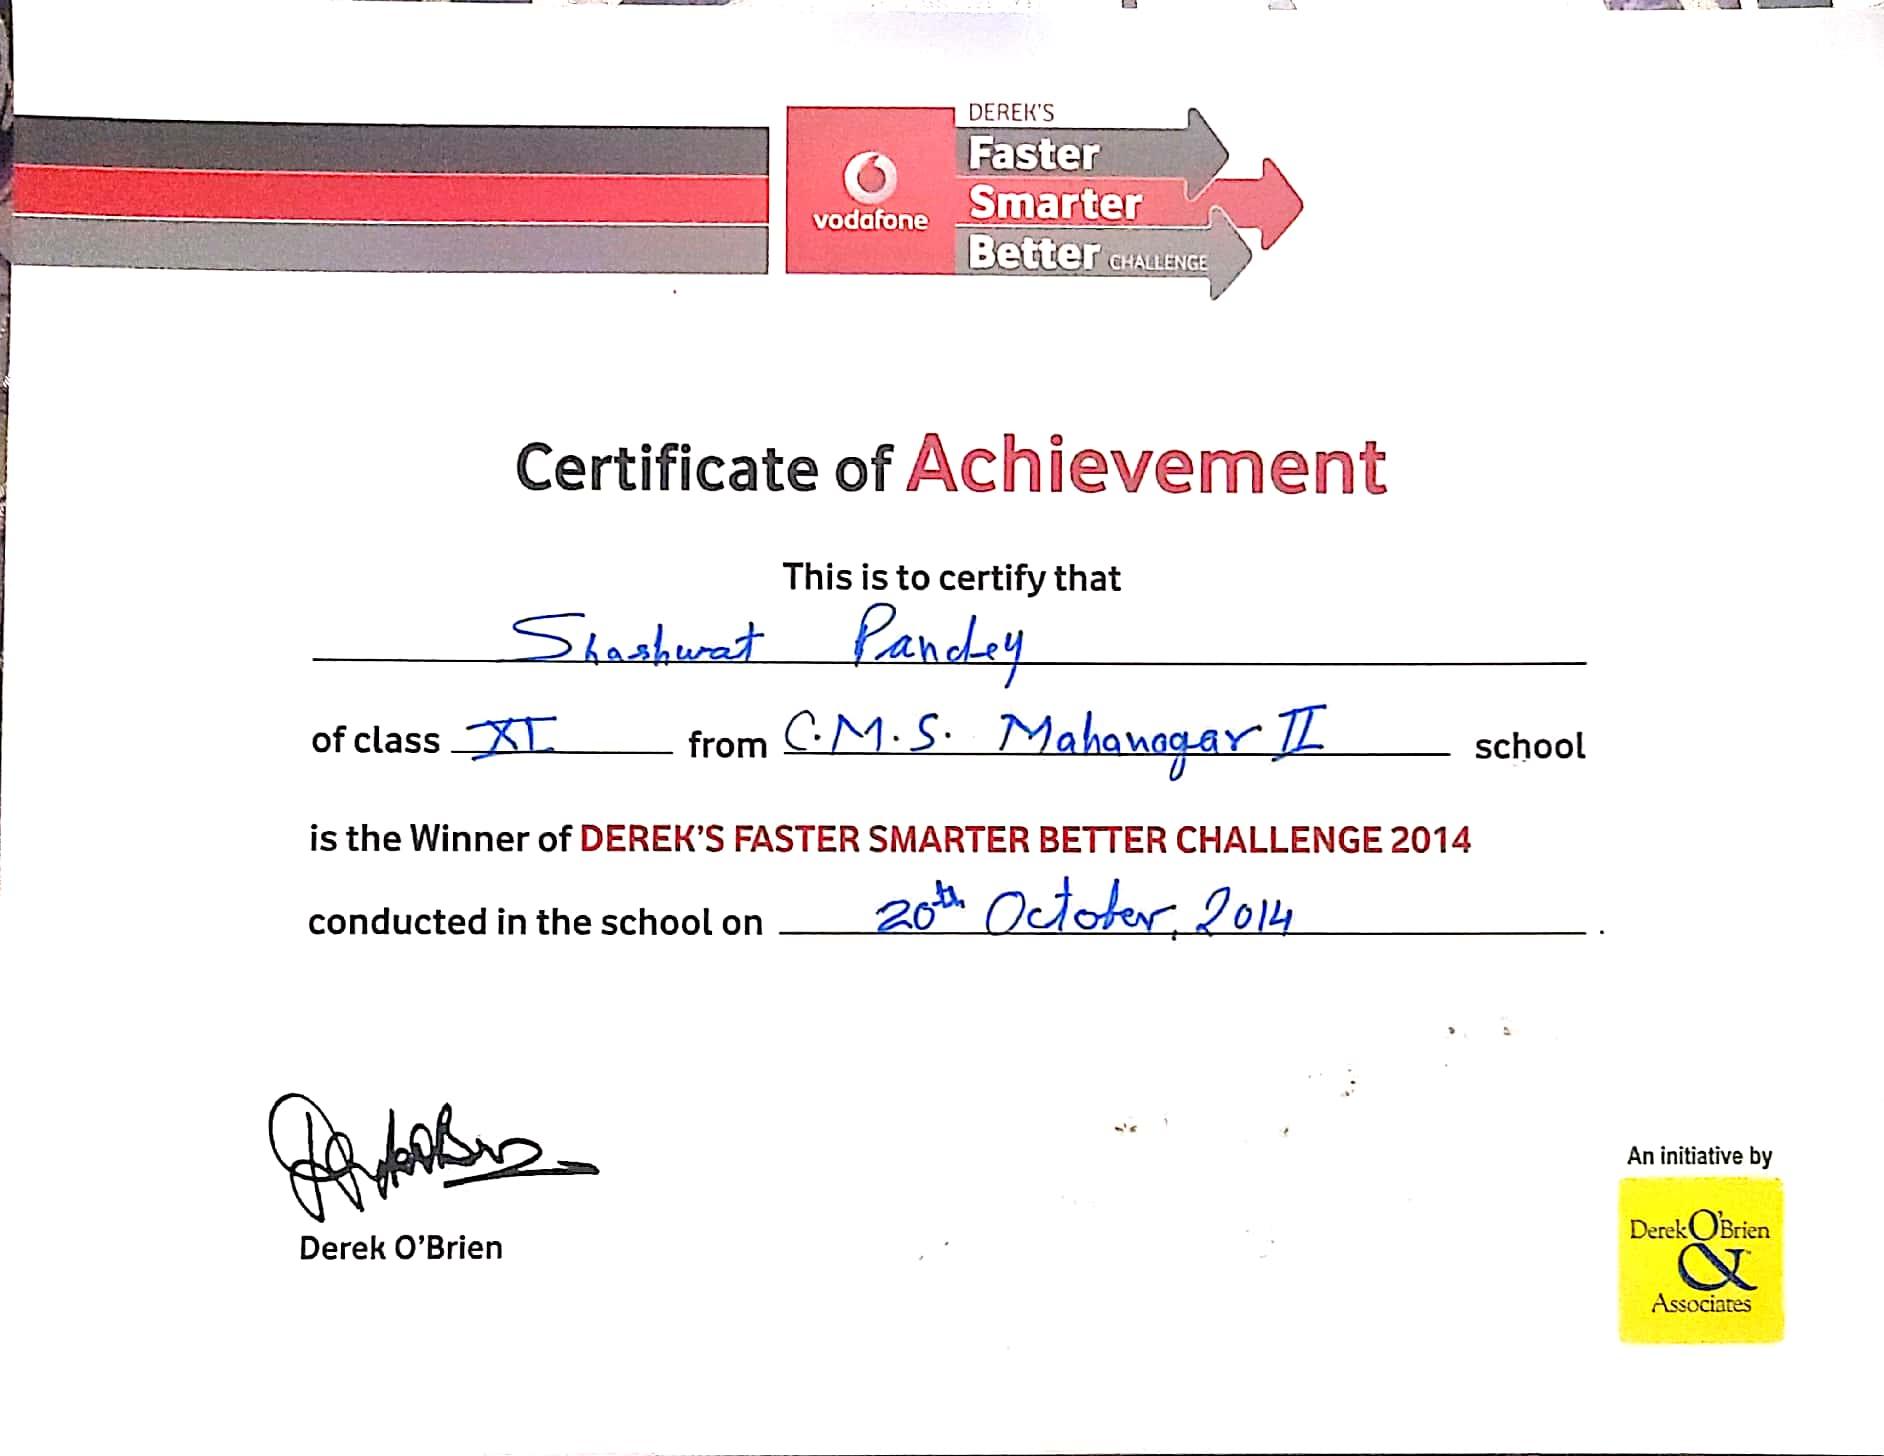 DEREK'S
Faster
Smarter
Better CHALLENGE
vodafone
Certificate of Achievement
This is to certify that
Shashwat Pandey
of class XI from C.M.S. Mahanagar II school
is the Winner of DEREK'S FASTER SMARTER BETTER CHALLENGE 2014
conducted in the school on 20th October, 2014.
Derek O'Brien
An initiative by
Derek O'Brien
&
Associates